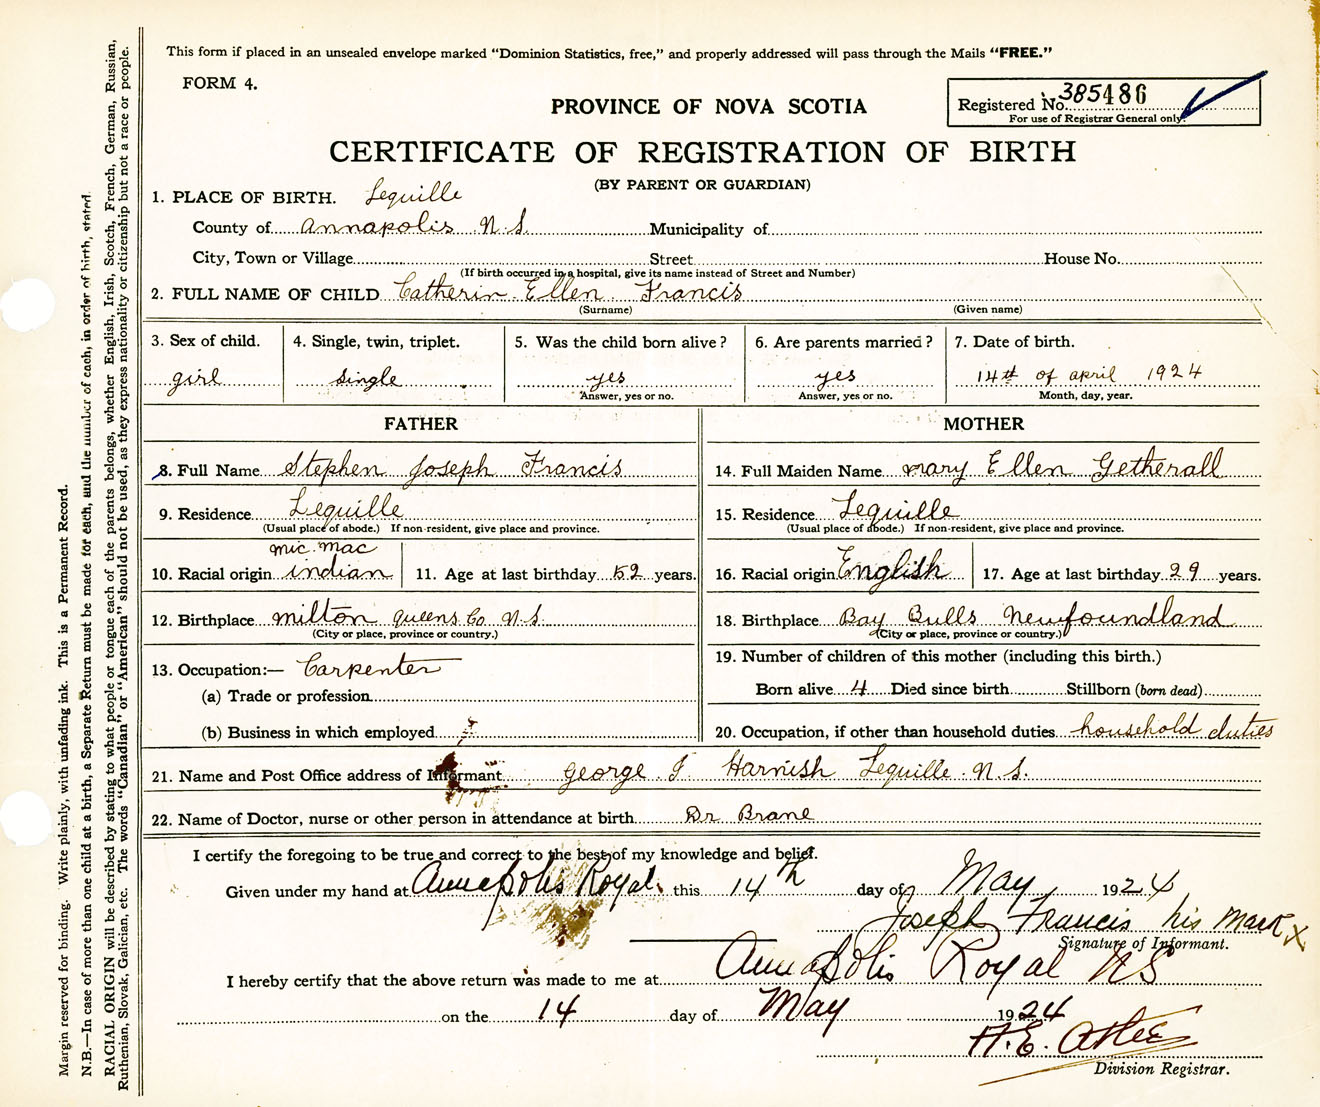 This form if placed in an unsealed envelope marked "Dominion Statistics, free," and properly addressed will pass through the Mails "FREE."
FORM 4.
PROVINCE OF NOVA SCOTIA
Registered No. 385486
For use of Registrar General only.
CERTIFICATE OF REGISTRATION OF BIRTH
(BY PARENT OR GUARDIAN)
1. PLACE OF BIRTH. Lequille
County of Annapolis N.S. Municipality of
City, Town or Village Street House No.
(If birth occurred in a hospital, give its name instead of Street and Number)
2. FULL NAME OF CHILD Catherin Ellen Francis
(Surname) (Given name)
3. Sex of child. 4. Single, twin, triplet. 5. Was the child born alive? 6. Are parents married? 7. Date of birth.
girl single yes yes 14th of april 1924
Answer, yes or no. Answer, yes or no. Month, day, year.
FATHER MOTHER
8. Full Name Stephen Joseph Francis 14. Full Maiden Name mary Ellen Getherall
9. Residence Lequille 15. Residence Lequille
(Usual place of abode.) If non-resident, give place and province. (Usual place of abode.) If non-resident, give place and province.
mic mac
10. Racial origin indian 11. Age at last birthday 52 years. 16. Racial origin English 17. Age at last birthday 29 years.
12. Birthplace milton queens Co N.S. 18. Birthplace Bay Bulls Newfoundland
(City or place, province or country.) (City or place, province or country.)
13. Occupation:— Carpenter 19. Number of children of this mother (including this birth.)
(a) Trade or profession Born alive 4 Died since birth Stillborn (born dead)
(b) Business in which employed 20. Occupation, if other than household duties household duties
21. Name and Post Office address of Informant George J Harnish Lequille N.S.
22. Name of Doctor, nurse or other person in attendance at birth Dr Brane
I certify the foregoing to be true and correct to the best of my knowledge and belief.
Given under my hand at Annapolis Royal this 14th day of May 1924
Joseph Francis his Mark X
Signature of Informant.
I hereby certify that the above return was made to me at Annapolis Royal NS
on the 14 day of May 1924
H.E. Atlee
Division Registrar.
Margin reserved for binding. Write plainly, with unfading ink. This is a Permanent Record.
N.B.—In case of more than one child at a birth, a Separate Return must be made for each, and the number of each, in order of birth, stated.
RACIAL ORIGIN will be described by stating to what people or tongue each of the parents belongs, whether English, Irish, Scotch, French, German, Russian,
Ruthenian, Slovak, Galician, etc. The words "Canadian" or "American" should not be used, as they express nationality or citizenship but not a race or people.